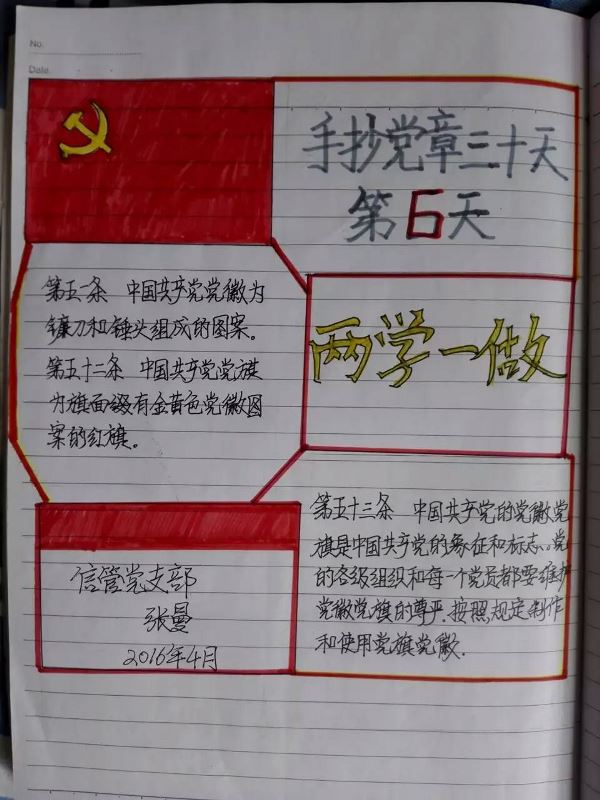 No.
Date
手抄党章三十天
第6天
第五二条 中国共产党党徽为
镰刀和锤头组成的图案。
第五十二条 中国共产党党旗
为旗面缀有金黄色党徽图
案的红旗。
两学一做
第五十三条 中国共产党的党徽党
旗是中国共产党的象征和标志.党
的各级组织和每一个党员都要维护
党徽党旗的尊严.按照规定制作
和使用党旗党徽.
信管党支部
张曼
2016年4月